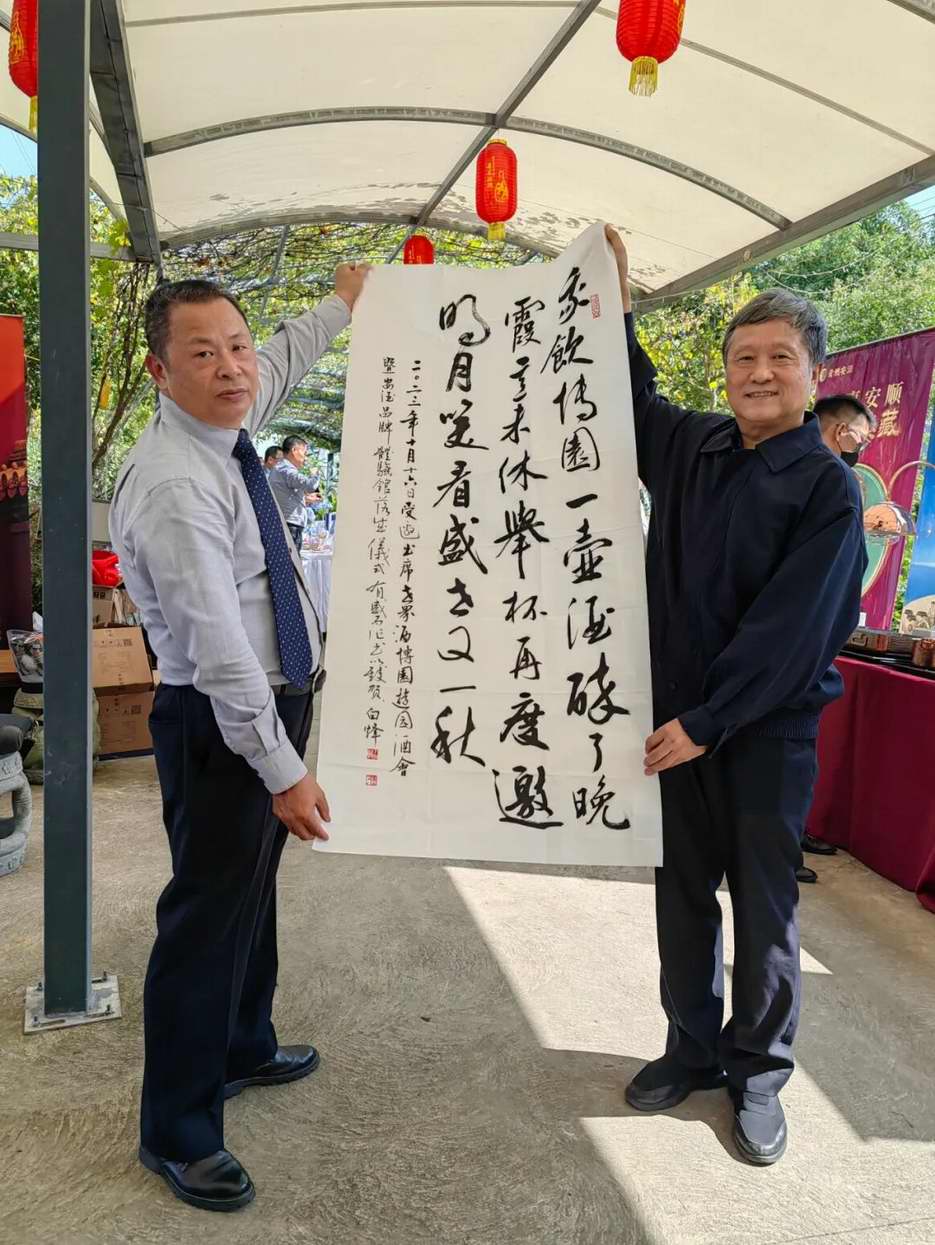 我飲博園一壺酒醉了晚
霞意未休舉杯再度邀
明月笑看盛世又一秋
二〇二三年十月十六日受邀出席世界酒博園遊園酒會
暨安酒品牌體驗館落成儀式有感而作書以致賀 白烽
貴州安酒
安順
藏